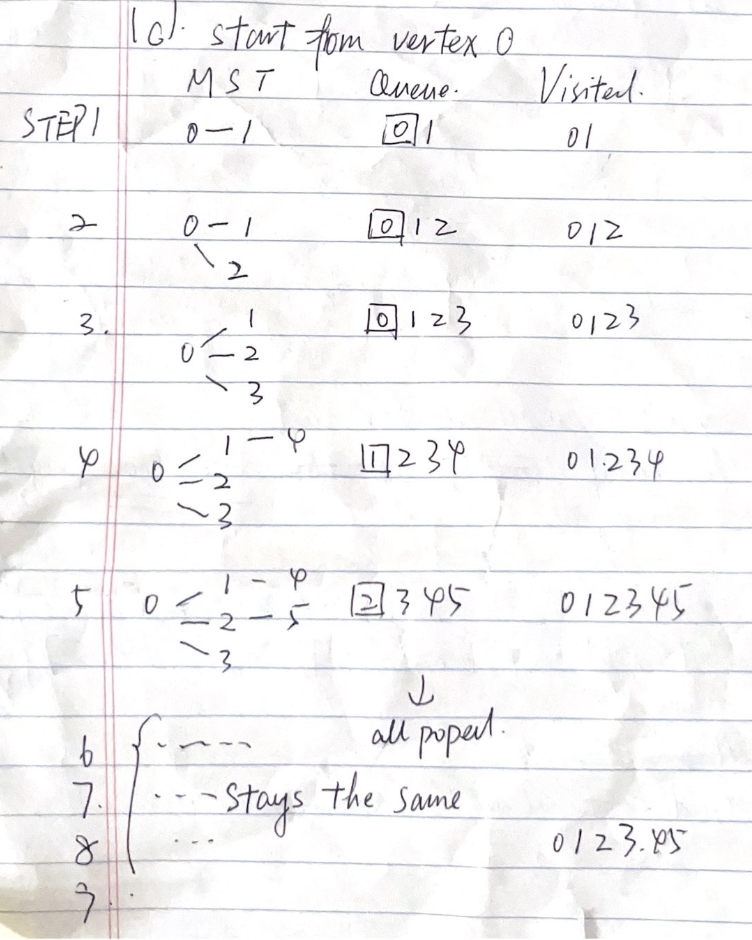 1(c). start from vertex 0
MST Queue. Visited.
STEP1 0-1 0 1 01
2 0-1 0 1 2 012
2
1
3. 0-2 0 1 2 3 0123
3
1-4
4 0-2 1 2 3 4 01234
3
1-4
5 0-2-5 2 3 4 5 012345
3
↓
all poped.
6 ----
7. ---stays the same
8 ... 0123.45
9.